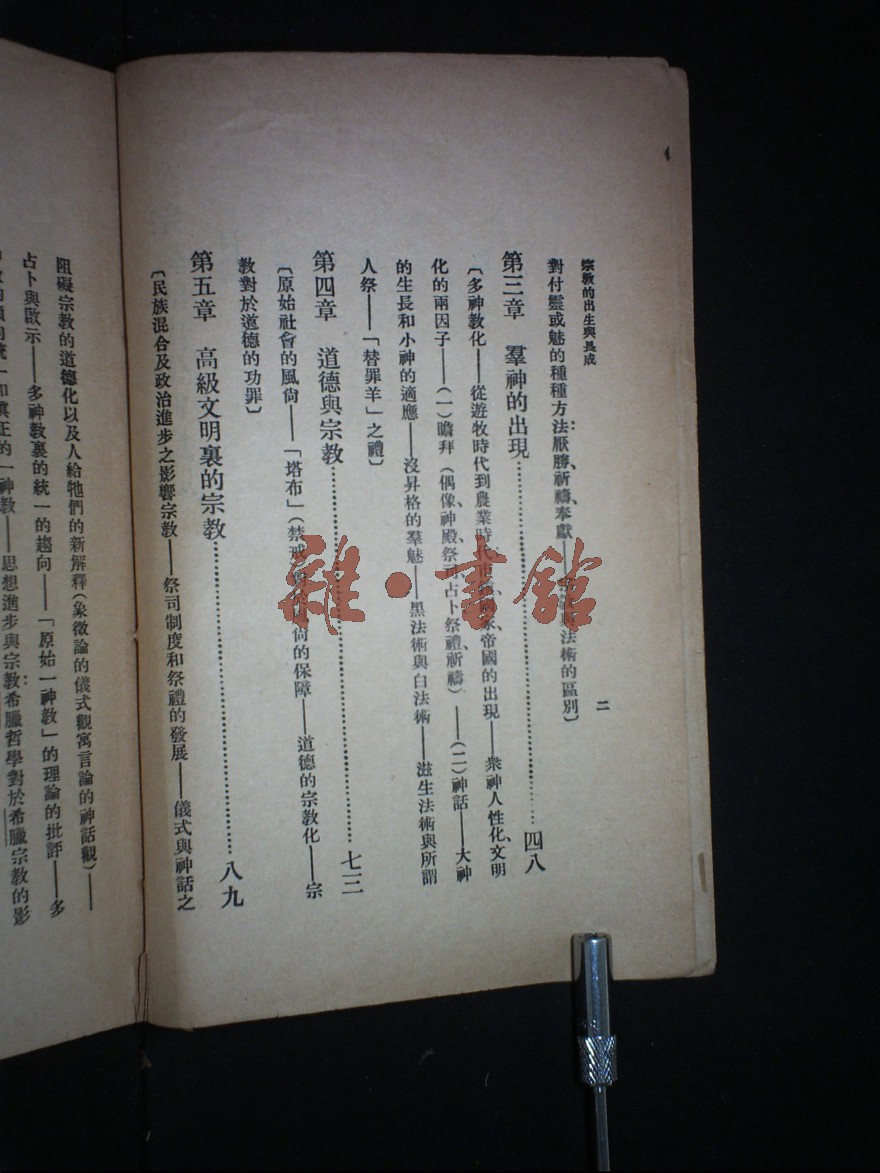 宗教的出生與長成
二
對付靈或魅的種種方法：厭勝、祈禱、奉獻——宗教與法術的區別〕
第三章　羣神的出現…………四八
〔多神教化——從遊牧時代到農業時代市國家、帝國的出現——衆神人性化、文明
化的兩因子——（一）瞻拜（偶像、神殿、祭司、占卜、祭禮、祈禱）——（二）神話——大神
的生長和小神的適應——沒昇格的羣魅——黑法術與白法術——滋生法術與所謂
人祭——「替罪羊」之禮〕
第四章　道德與宗教…………七三
〔原始社會的風尙——「塔布」（禁戒）風尙的保障——道德的宗教化——宗
教對於道德的功罪〕
第五章　高級文明裏的宗教…………八九
〔民族混合及政治進步之影響宗教——祭司制度和祭禮的發展——儀式與神話之
阻礙宗教的道德化以及人給牠們的新解釋（象徵論的儀式觀寓言論的神話觀）——
占卜與啟示——多神教裏的統一的趨向——「原始一神教」的理論的批評——多
的統一和眞正的一神教——思想進步與宗教：希臘哲學對於希臘宗教的影
雜·書館